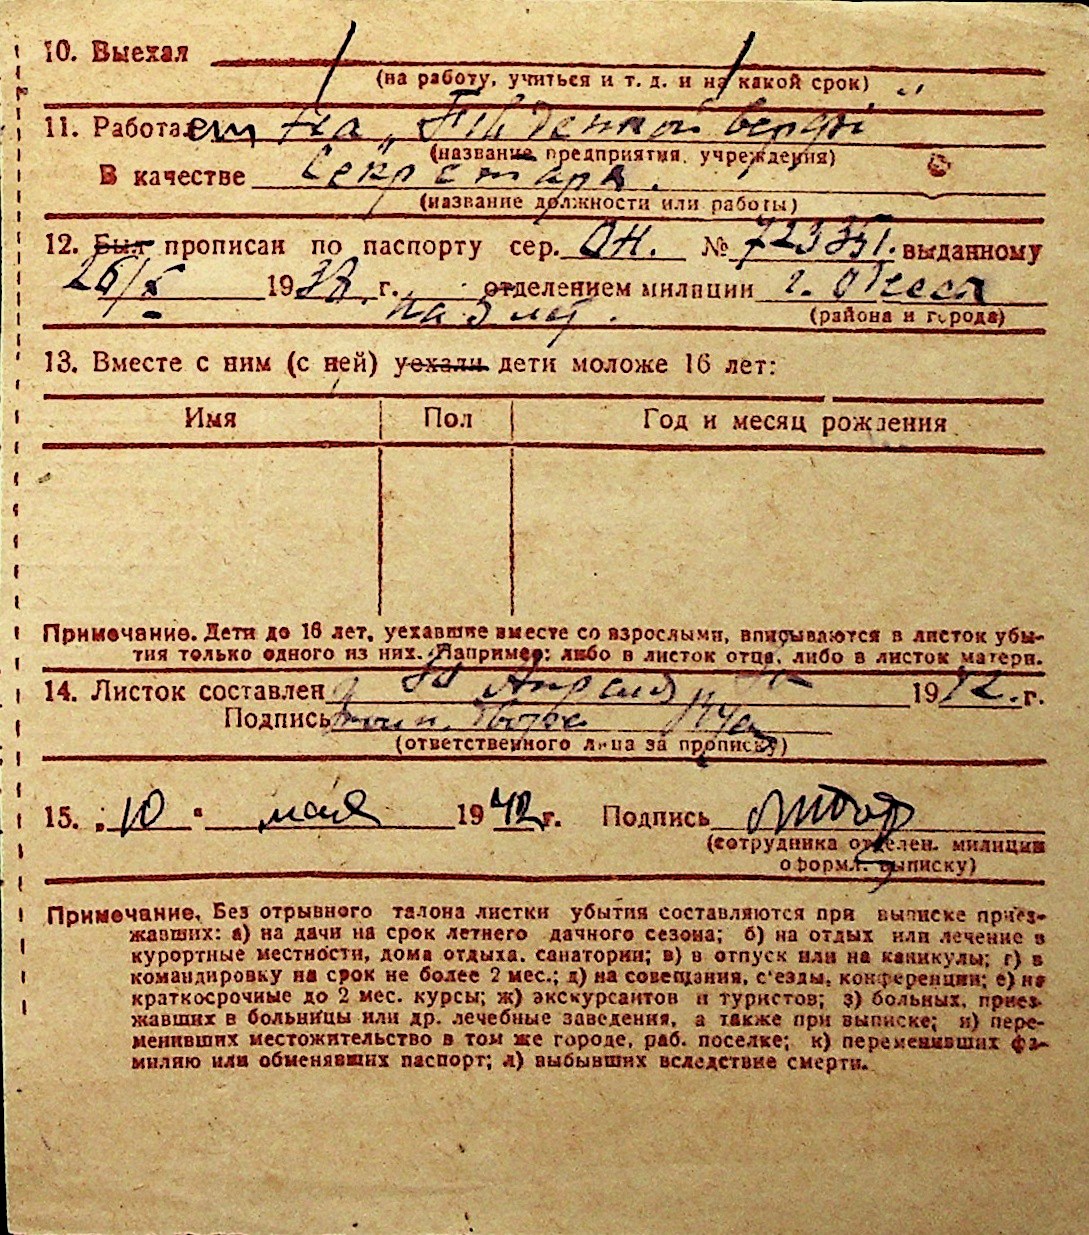 10. Выехал
(на работу, учиться и т. д. и на какой срок)
11. Работает на „Південной верфі
(название предприятия, учреждения)
В качестве Секретаря.
(название должности или работы)
12. Был прописан по паспорту сер. ОН. № 723351. выданному
26/X 1938 г. отделением милиции г. Одесса
на 5 лет. (района и города)
13. Вместе с ним (с ней) уехали дети моложе 16 лет:
Имя Пол Год и месяц рождения
Примечание. Дети до 16 лет, уехавшие вместе со взрослыми, вписываются в листок убы-
тия только одного из них. Например: либо в листок отца, либо в листок матери.
14. Листок составлен Апреля 1942. г.
Подпись
(ответственного лица за прописку)
15. „10 " мая 1942 г. Подпись
(сотрудника отделен. милиции
оформл. выписку)
Примечание. Без отрывного талона листки убытия составляются при выписке приез-
жавших: а) на дачи на срок летнего дачного сезона; б) на отдых или лечение в
курортные местности, дома отдыха, санатории; в) в отпуск или на каникулы; г) в
командировку на срок не более 2 мес.; д) на совещания, с'езды, конференции; е) на
краткосрочные до 2 мес. курсы; ж) экскурсантов и туристов; з) больных, приез-
жавших в больницы или др. лечебные заведения, а также при выписке; и) пере-
менивших местожительство в том же городе, раб. поселке; к) переменивших фа-
милию или обменявших паспорт; л) выбывших вследствие смерти.